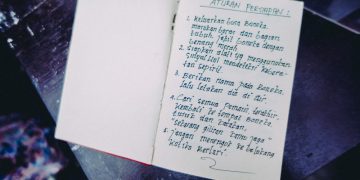 ATURAN PERMAINAN :
1. keluarkan busa boneka.
masukan beras dan bagian
tubuh, jahit boneka dengan
benang merah.
2. siapkan alat yg mengeluarkan
sinyal
spirit.
3. Berikan nama pada boneka.
lalu letakan dia di air
4. Cari semua pemain terakhir.
kembali ke tempat boneka,
tusuk dan katakan,
"sekarang giliran kamu jaga"
5. jangan menengok ke belakang
ketika berlari.